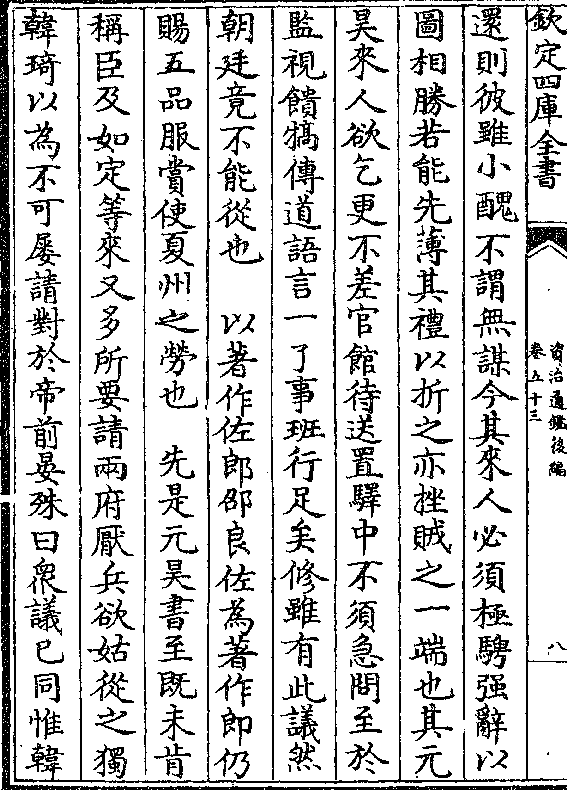 欽定四庫全書
資治通鑑後編
卷五十三
八
還則彼雖小醜不謂無謀今其來人必須極騁强辭以
圖相勝若能先薄其禮以折之亦挫賊之一端也其元
昊來人欲乞更不差官館待送置驛中不須急問至於
監視饋犒傳道語言一了事班行足矣修雖有此議然
朝廷竟不能從也　以著作佐郎邵良佐為著作郎仍
賜五品服賞使夏州之勞也　先是元昊書至既未肯
稱臣及如定等來又多所要請兩府厭兵欲姑從之獨
韓琦以為不可屢請對於帝前晏殊曰衆議已同惟韓